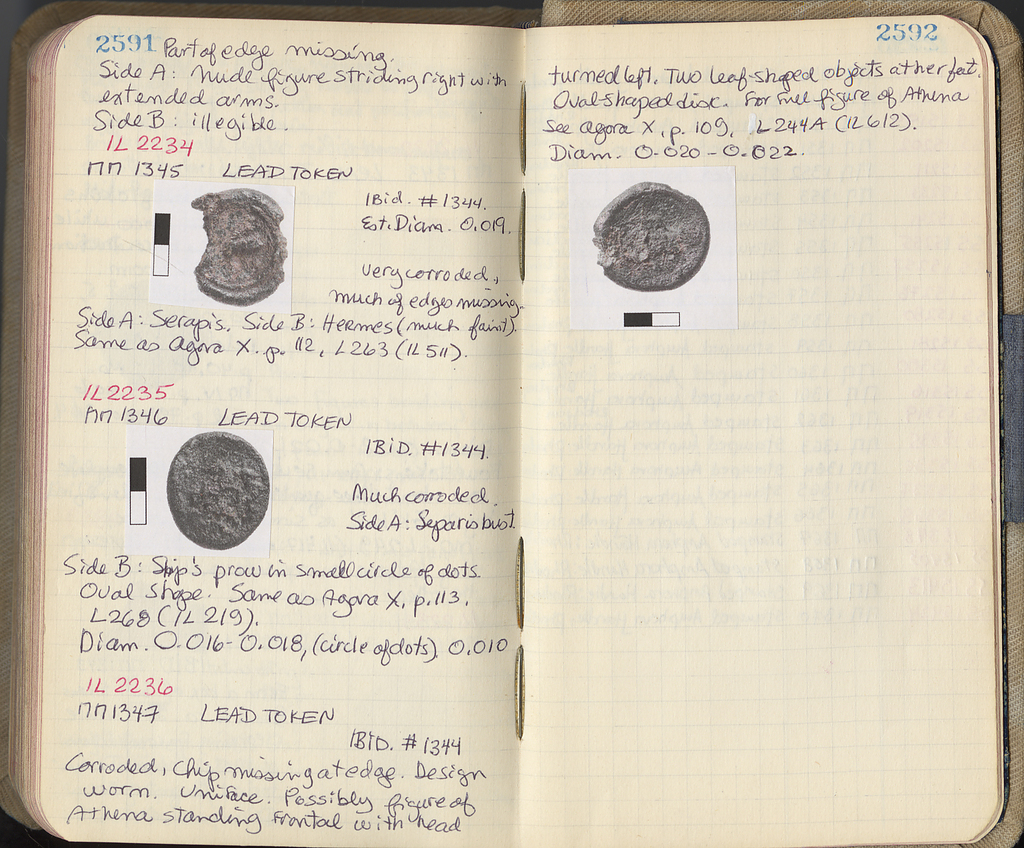 2591 Part of edge missing.
Side A: Nude figure striding right with
extended arms.
Side B: illegible.
IL 2234
ΠΠ 1345 LEAD TOKEN
IBid. #1344.
Est. Diam. 0.019.
very corroded,
much of edges missing.
Side A: Serapis. Side B: Hermes (much faint).
Same as Agora X. p. 112, L263 (IL 511).
IL 2235
ΠΠ 1346 LEAD TOKEN
IBID. #1344.
Much corroded.
Side A: Separis bust.
Side B: Ship's prow in small circle of dots.
Oval Shape. Same as Agora X, p. 113,
L268 (IL 219).
Diam. 0.016-0.018, (circle of dots) 0.010
IL 2236
ΠΠ 1347 LEAD TOKEN
IBID. #1344
Corroded, chip missing at edge. Design
worn. Uniface. Possibly figure of
Athena standing frontal with head
2592
turned left. Two leaf-shaped objects at her feet.
Oval-shaped disc. For full figure of Athena
see Agora X, p. 109, L244A (IL 612).
Diam. 0.020-0.022.